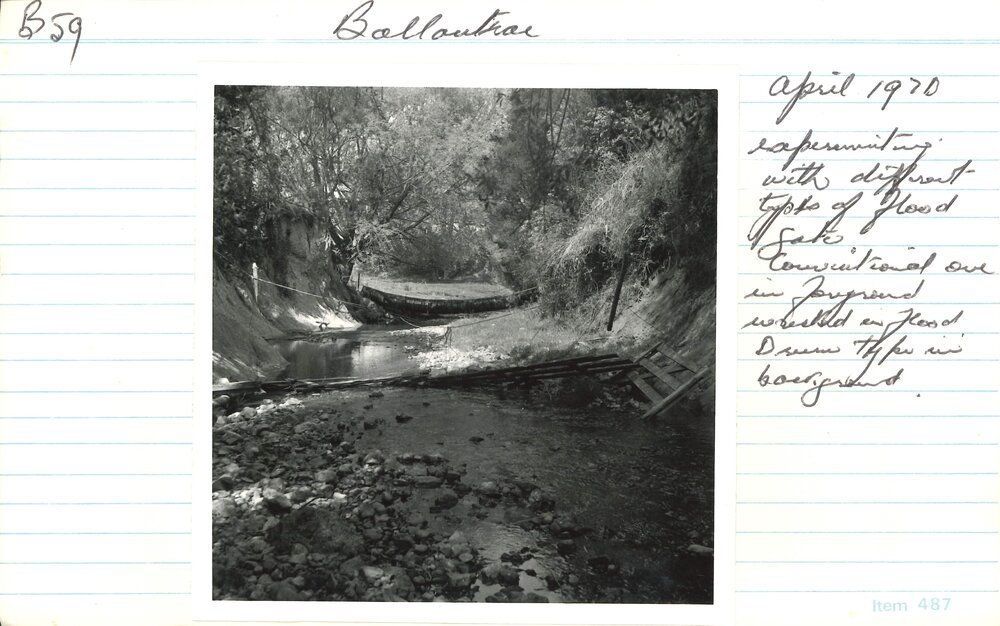 B59
Ballantrae
April 1970
experimenting
with different
types of flood
gate
Conventional one
in foreground
wrecked in flood
Drum type in
background.
Item 487